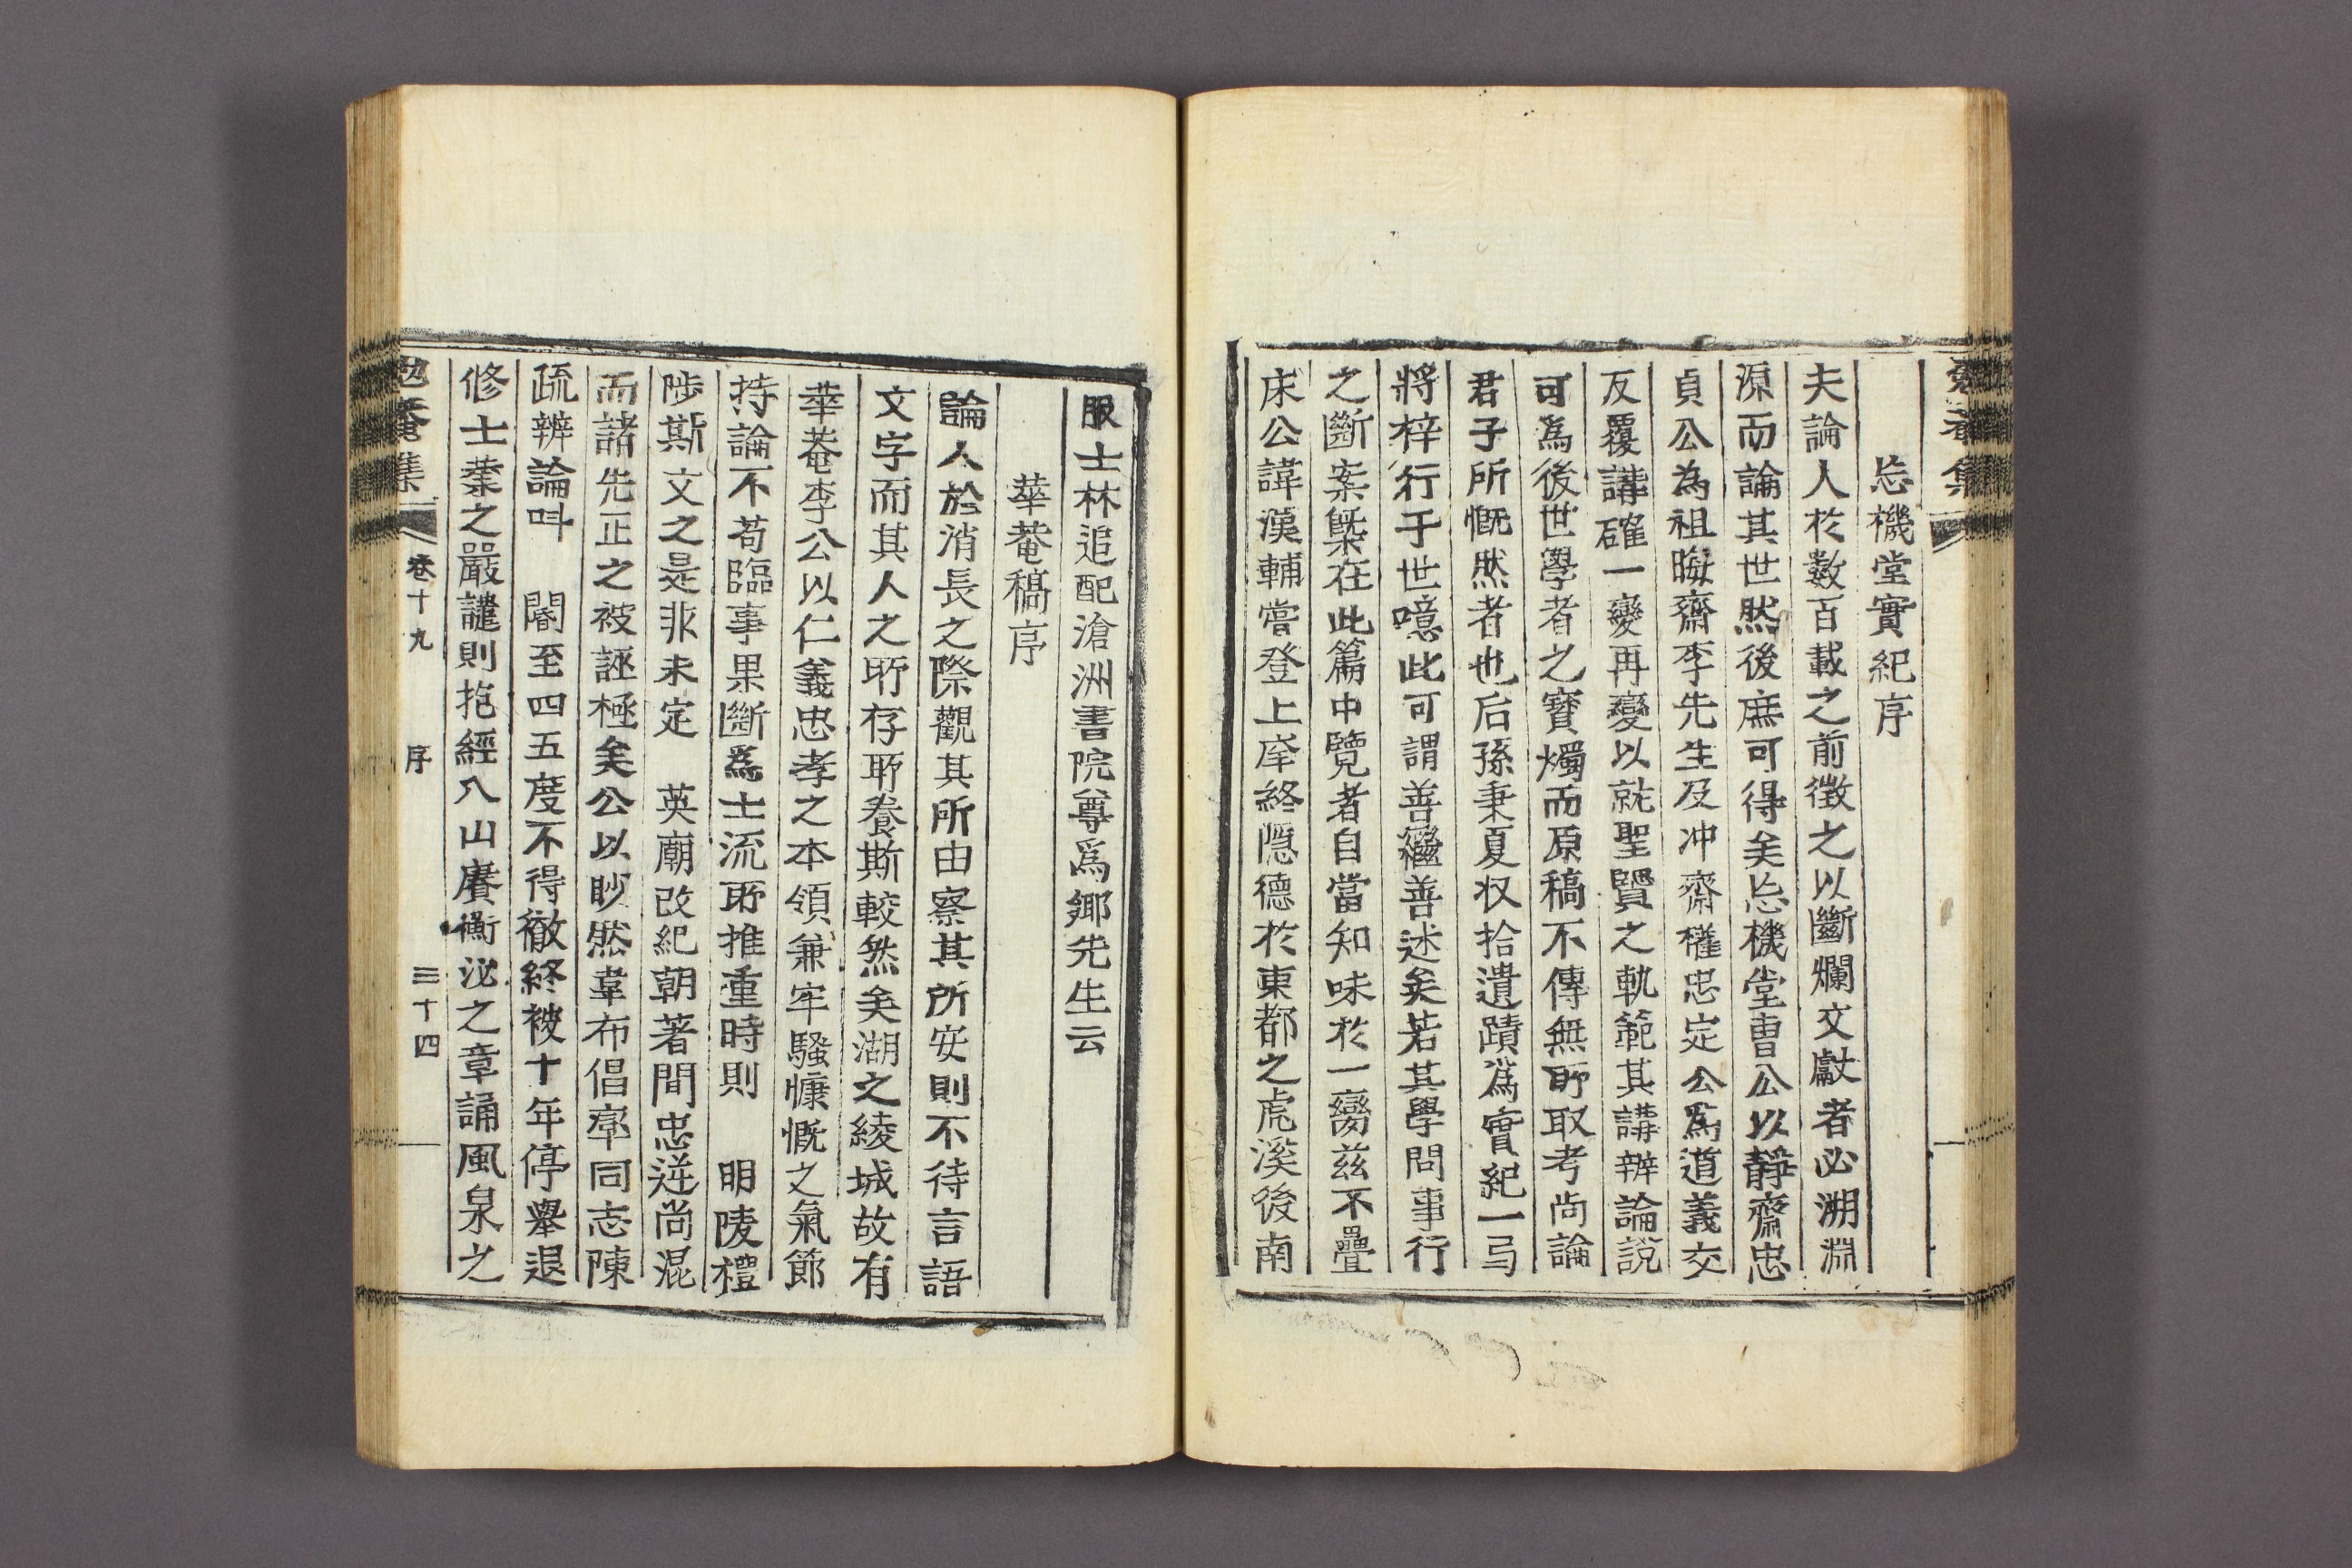 忘機堂實紀序
夫論人於數百載之前徵之以斷爛文獻者必溯淵
源而論其世然後庶可得矣忘機堂曺公以靜齋忠
貞公為祖晦齋李先生及冲齋權忠定公爲道義交
反覆講確一變再變以就聖賢之軌範其講辨論說
可爲後世學者之寶燭而原稿不傳無所取考尙論
君子所慨然者也后孫秉夏収拾遺蹟爲實紀一弓
將梓行于世噫此可謂善繼善述矣若其學問事行
之斷案槩在此篇中覽者自當知味於一臠玆不疊
床公諱漢輔嘗登上庠終隱德於東都之虎溪後南
服士林追配滄洲書院尊爲鄕先生云
華菴稿序
論人於消長之際觀其所由察其所安則不待言語
文字而其人之所存所養斯較然矣湖之綾城故有
華菴李公以仁義忠孝之本領兼牢騷慷慨之氣節
持論不苟臨事果斷爲士流所推重時則 明陵禮
陟斯文之是非未定 英廟改紀朝著間忠逆尙混
而諸先正之被誣極矣公以眇然韋布倡率同志陳
疏辨論呌 閽至四五度不得徹終被十年停擧退
修士業之嚴譴則抱經入山賡衡泌之章誦風泉之
勉菴集 卷十九 序 三十四